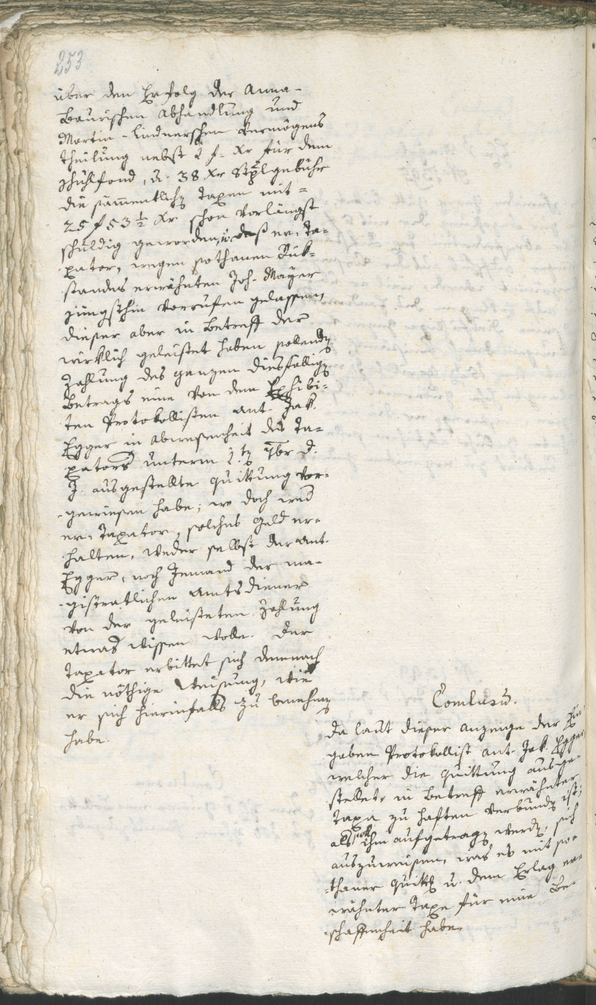 253
über den Erfolg der Anna-
Baurischen Abhandlung und
Martin-Lindnerschen Vermögens
theilung nebst 2 f. Xr für den
Schulfond, u. 38 Xr Stplgebühr
die sammentliche Taxen mit =
25 f 53 1/2 Xr schon vorlängst
schuldig geworden, daß er, Ta-
xator, wegen sothanen Rük-
standes erwähnten Joh. Mayer
jüngsthin vorrufen gelassen,
dieser aber in Betreff der
wirklich geleistet haben sollenden
Zahlung des ganzen diesfälligen
Betrags eine von dem Exhibi-
ten Protokollisten Ant. Jak.
Egger in Abwesenheit des Ta-
xators unterm 7br d.
J. ausgestellte Quittung vor-
gewiesen habe; wo doch weder
er Taxator, solches Geld er-
halten, weder selbst der Ant.
Egger, noch Jemand der ma-
gistratlichen Amtsdiener
von der geleisteten Zahlung
etwas wissen wolle. Der
Taxator erbittet sich demnach
die nöthige Weisung, wie
er sich hierinfalls zu benehmen
habe.
Conclusum.
Da laut dieser Anzeige der Ein-
gaben Protokollist Ant. Jak. Egger
welcher die Quittung ausge-
stellt, in Betreff erwähnter
Taxa zu haften verbunden ist;
als ihm aufgetragen werde, sich
auszuweisen, was es mit so-
thaner Quittung u. dem Erlag er-
wähnter Taxe für eine Be-
schaffenheit habe.